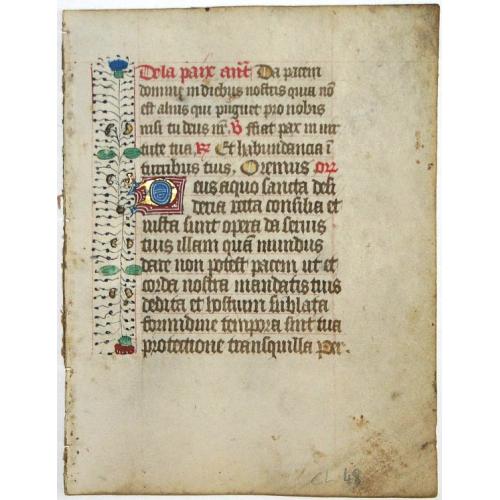 De la paix ant̄ Da pacem
domine in diebus nostris quia nō
est alius qui pugnet pro nobis
nisi tu deus nr̄. V ffiat pax in uir
tute tua R Et habundancia ī
turribus tuis, Oremus orꝛ
Deus a quo sancta desi
deria recta consilia et
iusta sunt opera da seruis
tuis illam quā mundus
dare non potest pacem ut et
corda nostra mandatis tuis
dedita et hostium sublata
formidine tempora sint tua
protectione tranquilla per.
CL 48